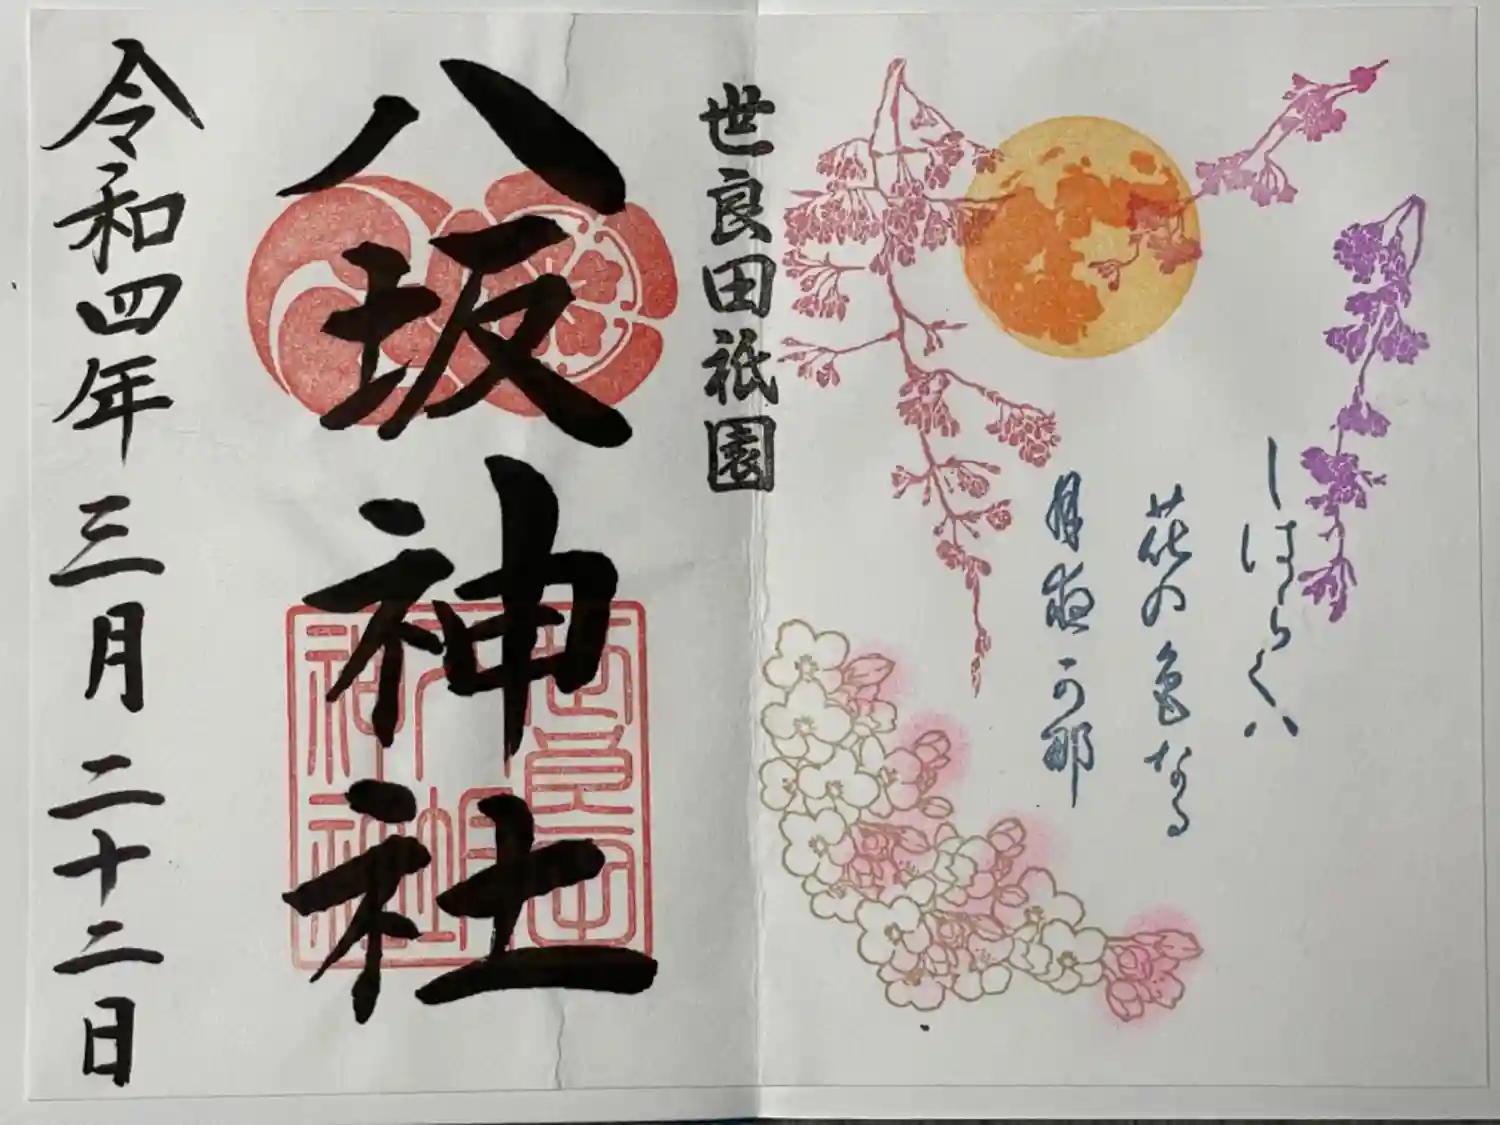 しはらくハ
花の色なる
月夜可那
世良田祇園
八坂神社
令和四年三月二十二日